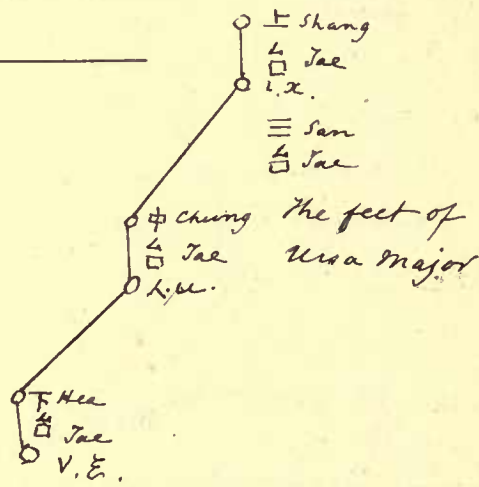 上 Shang
台 Tae
ι.χ.
三 San
台 Tae
中 Chung
台 Tae
λ.μ.
The feet of
Ursa Major
下 Hea
台 Tae
ν.ξ.